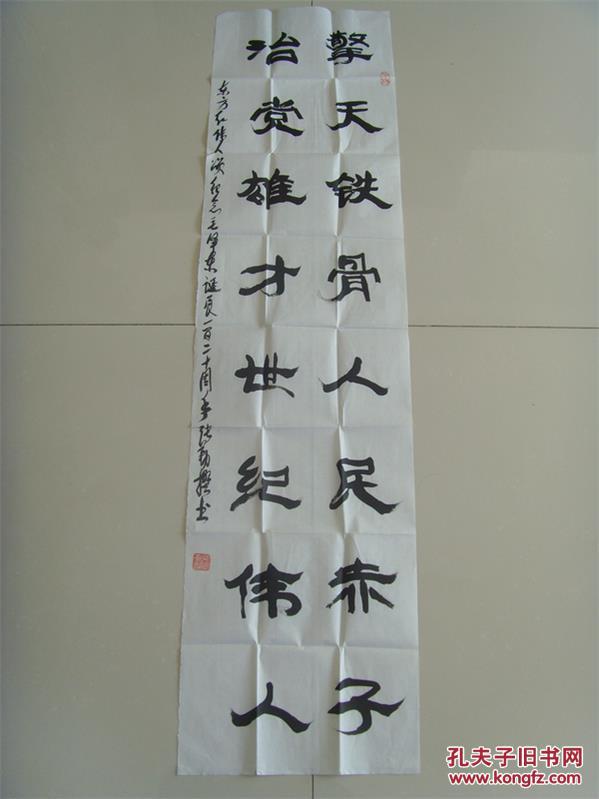 擎天铁骨人民赤子
治党雄才世纪伟人
东方红 人 纪念毛泽东诞辰一百二十周年 张勤 书
孔夫子旧书网
www.kongfz.com